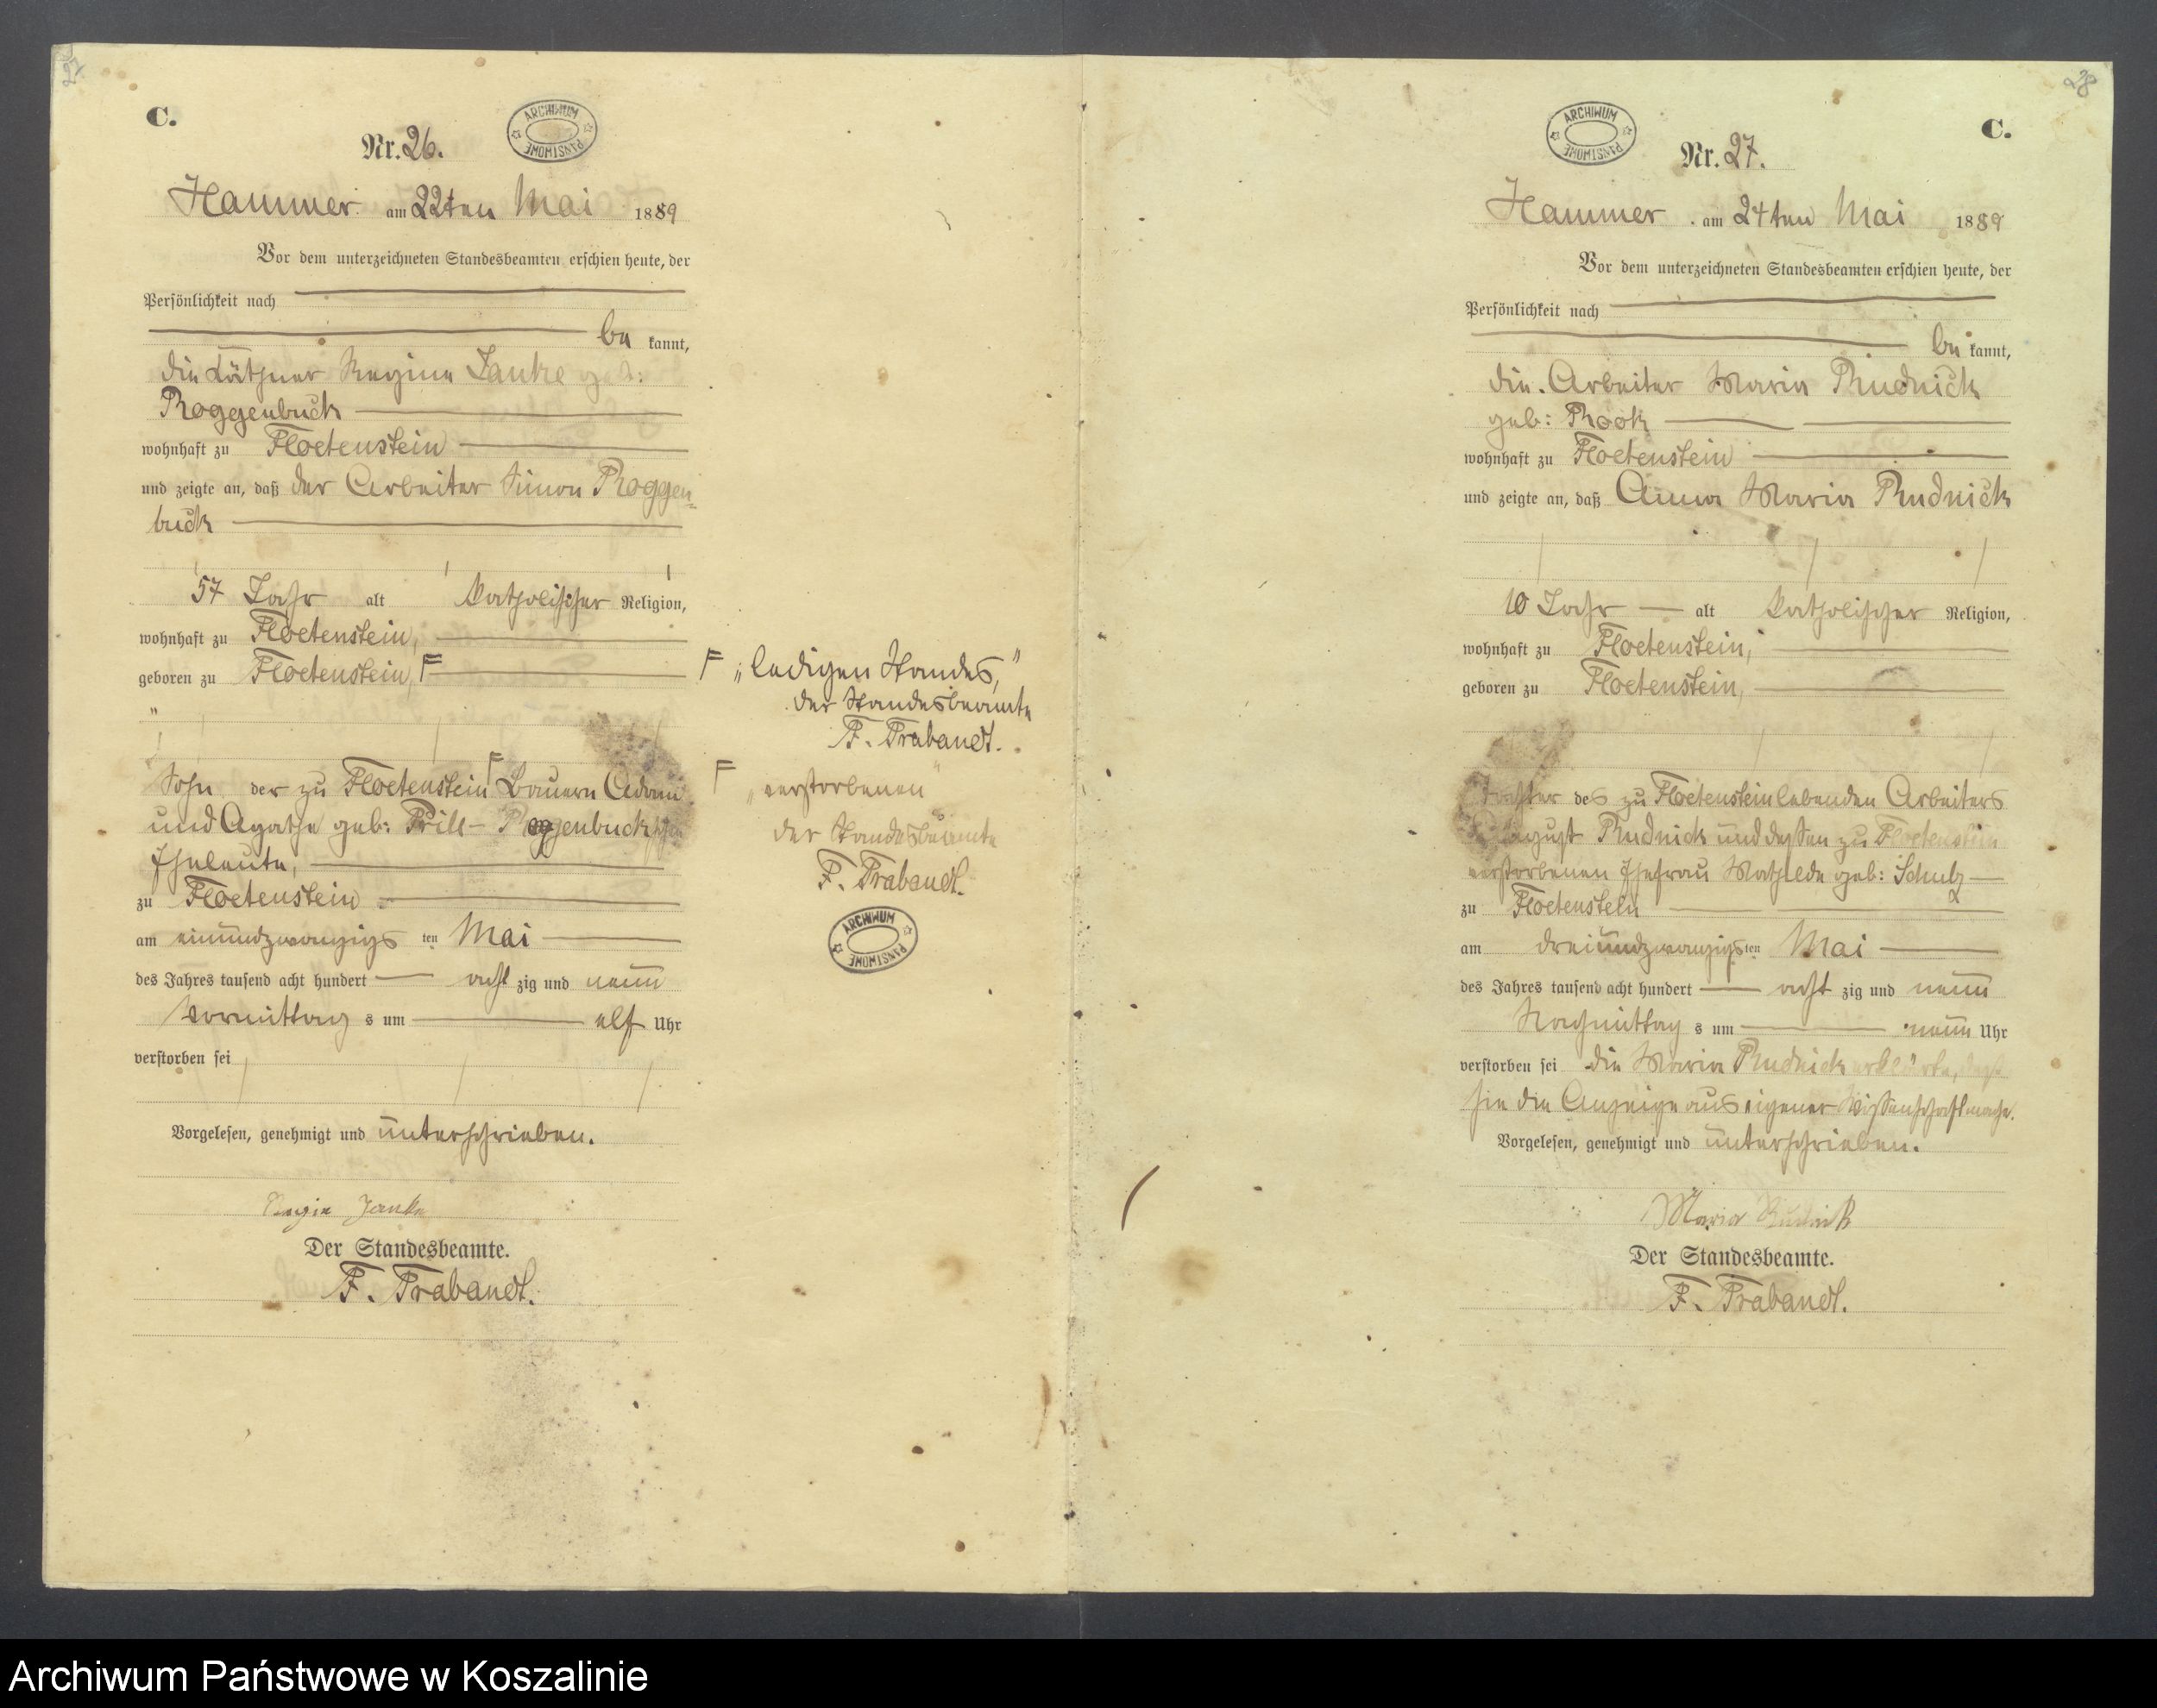 27
C.
ARCHIWUM PAŃSTWOWE
Nr. 26.
Hammer am 22ten Mai 1889
Vor dem unterzeichneten Standesbeamten erschien heute, der
Persönlichkeit nach
be kannt,
die Käthner Regine Janke geb:
Roggenbuck
wohnhaft zu Floetenstein
und zeigte an, daß der Arbeiter Simon Roggen-
buck
57 Jahr alt katholischer Religion,
wohnhaft zu Floetenstein,
geboren zu Floetenstein, F
F „ledigen Standes,"
der Standesbeamte
F. Trabandt.
Sohn der zu Floetenstein F Bauern Adam
und Agathe geb: Prill - Roggenbuck'schen
Eheleute,
zu Floetenstein
am einundzwanzigs ten Mai
des Jahres tausend acht hundert acht zig und neun
Vormittag s um elf Uhr
verstorben sei
F „verstorbenen"
der Standesbeamte
F. Trabandt.
ARCHIWUM PAŃSTWOWE
Vorgelesen, genehmigt und unterschrieben.
Regin Janke
Der Standesbeamte.
F. Trabandt.
28
C.
ARCHIWUM PAŃSTWOWE
Nr. 27.
Hammer am 24ten Mai 1889
Vor dem unterzeichneten Standesbeamten erschien heute, der
Persönlichkeit nach
be kannt,
die Arbeiter Maria Rudnick
geb: Rook
wohnhaft zu Floetenstein
und zeigte an, daß Anna Maria Rudnick
10 Jahr alt katholischer Religion,
wohnhaft zu Floetenstein,
geboren zu Floetenstein,
Tochter des zu Floetenstein lebenden Arbeiters
August Rudnick und dessen zu Floetenstein
verstorbenen Ehefrau Mathilde geb: Schulz
zu Floetenstein
am dreiundzwanzigs ten Mai
des Jahres tausend acht hundert acht zig und neun
Nachmittag s um neun Uhr
verstorben sei die Maria Rudnick erklärte, daß
sie die Anzeige aus eigener Wissenschaft mache.
Vorgelesen, genehmigt und unterschrieben.
Maria Rudnick
Der Standesbeamte.
F. Trabandt.
Archiwum Państwowe w Koszalinie